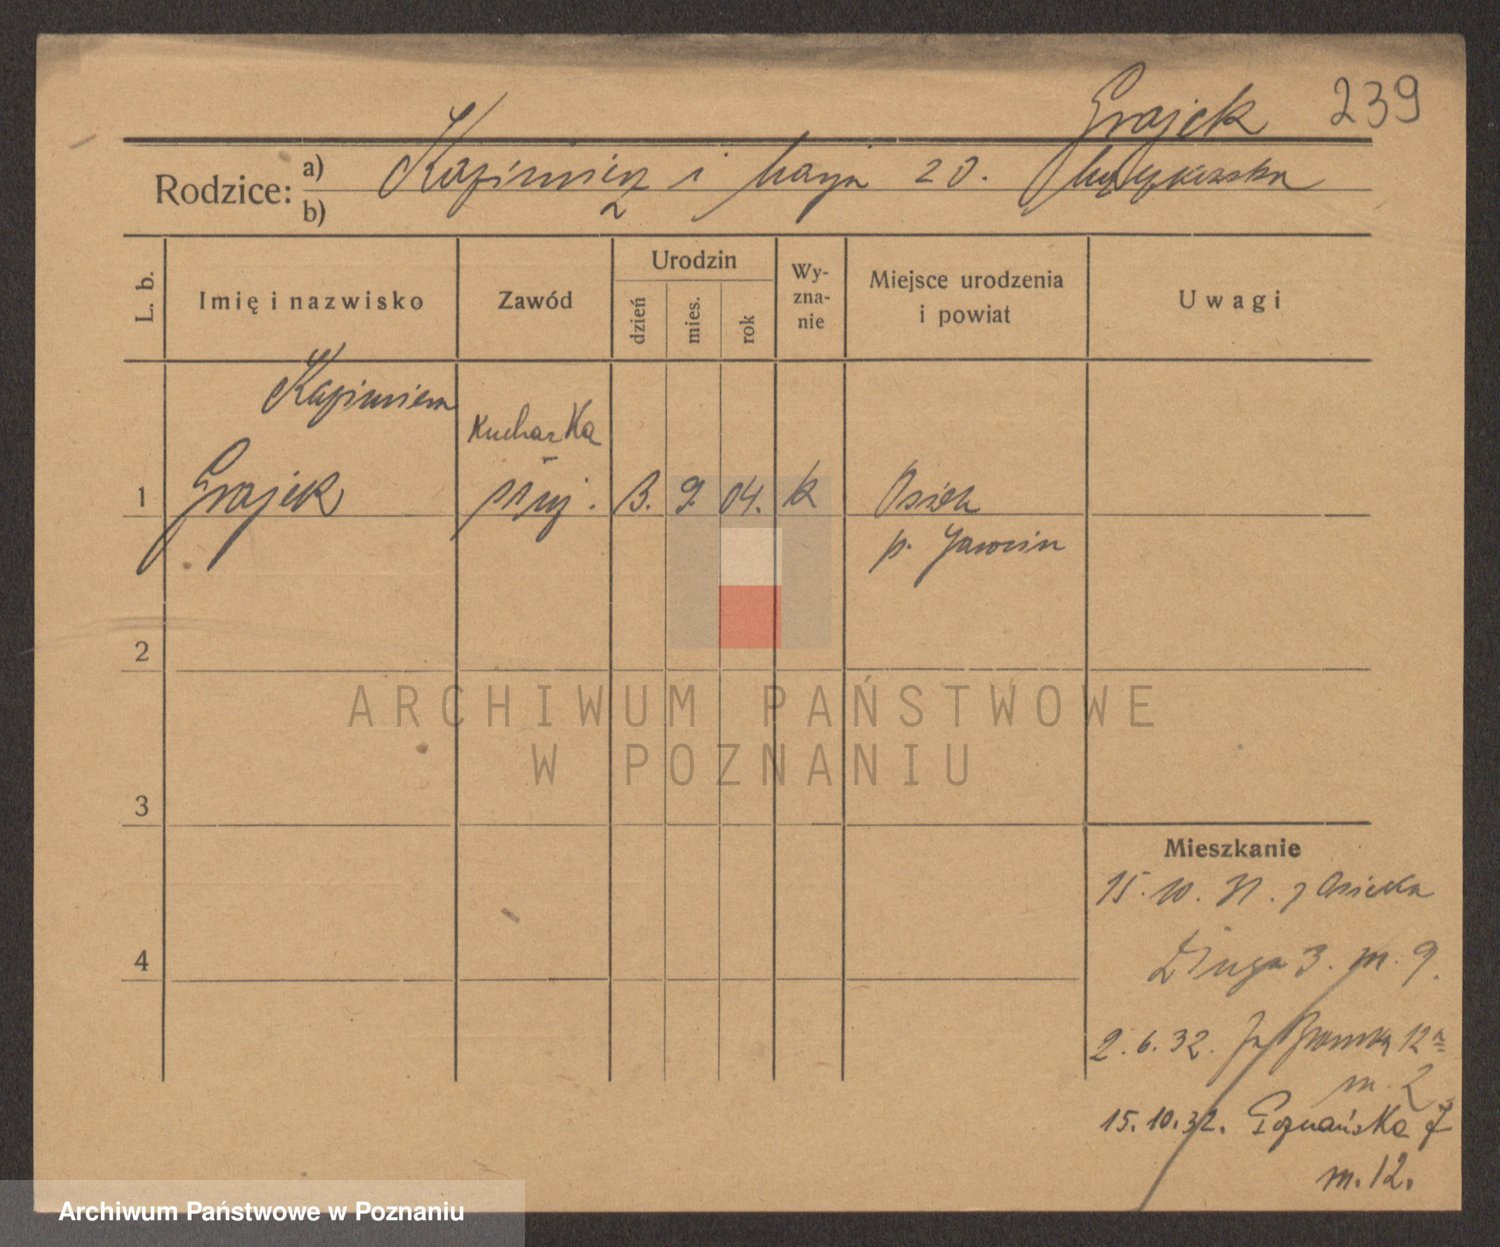 Grajek 239
Rodzice: a) Kazimierz i Marja zd.
b)
L. b.
Imię i nazwisko
Zawód
Urodzin
dzień
mies.
rok
Wy-
zna-
nie
Miejsce urodzenia
i powiat
Uwagi
Kazimiera
Kucharka
1 Grajek 3. 9. 04. k Osiek
p. Jarocin
2
3
4
ARCHIWUM PAŃSTWOWE
W POZNANIU
Mieszkanie
15. 10. 31. z Osieka
Długa 3. m. 9.
2. 6. 32. 12a
m. 2
15. 10. 32. Poznańska 7
m. 12.
Archiwum Państwowe w Poznaniu